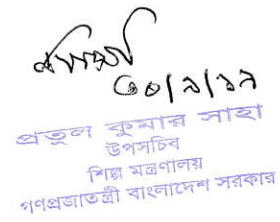 প্রতুল কুমার সাহা
উপসচিব
শিল্প মন্ত্রণালয়
গণপ্রজাতন্ত্রী বাংলাদেশ সরকার